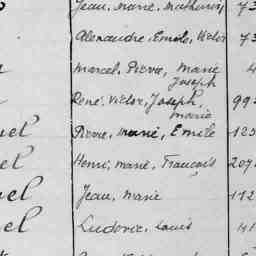 Jean, Marie, Mathurin 73
Alexandre, Emile, Victor 73
Marcel, Pierre, Marie 4
Joseph
René, Victor, Joseph, 993
Marie
uel Pierre, Marie, Emile 125
el Henri, Marie, François 207
uel Jean, Marie 112
uel Ludovic, Louis 41